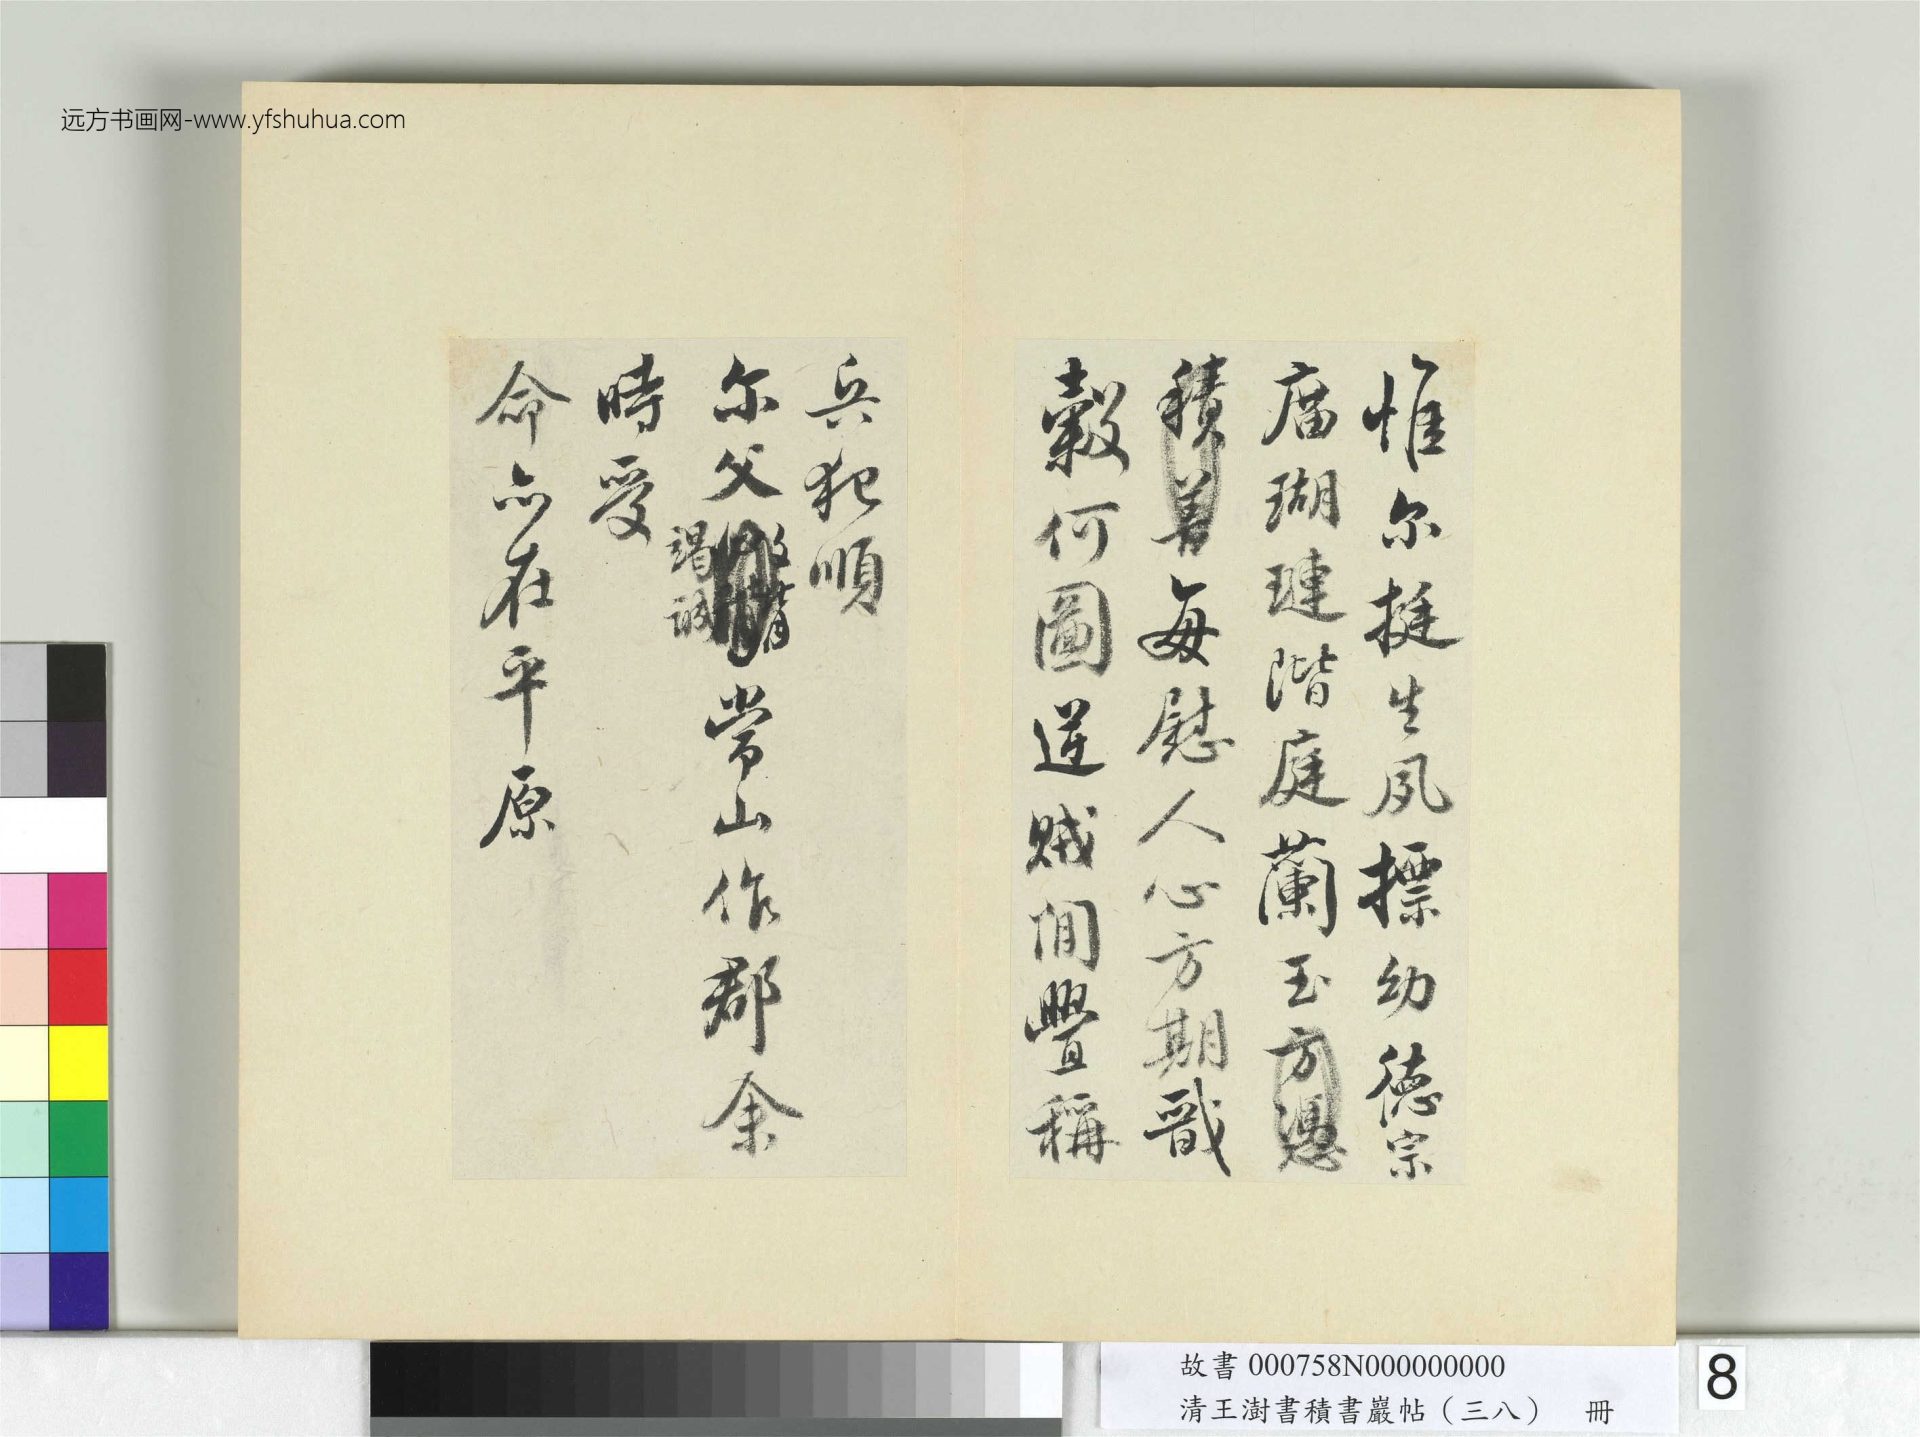 远方书画网-www.yfshuhua.com
惟尔挺生夙標幼德宗
庿瑚璉階庭蘭玉方凴
積善每慰人心方期戩
糓何圖逆賊閒釁稱
兵犯順
尔父
竭誠
常山作郡余
時受
命亦在平原
故書 000758N000000000
清王澍書積書巖帖（三八） 冊
8